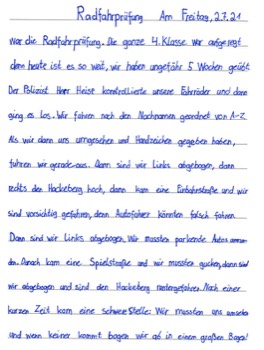 Radfahrprüfung Am Freitag, 2.7.21
war die Radfahrprüfung. Die ganze 4. Klasse war aufgeregt
denn heute ist es so weit, wir haben ungefähr 5 Wochen geübt
Der Polizist Herr Heise kontrollierte unsere Fahrräder und dann
ging es los. Wir fahren nach den Nachnamen geordnet von A-Z
Als wir dann uns umgesehen und Handzeichen gegeben haben,
fuhren wir gerade aus. Dann sind wir Links abgebogen, dann
rechts den Hackeberg hoch, dann kam eine Einbahnstraße und wir
sind vorsichtig gefahren, denn Autofahrer könnten falsch fahren
Dann sind wir Links abgebogen. Wir mussten parkende Autos
Danach kam eine Spielstraße und wir mussten gucken, dann sind
wir abgebogen und sind den Hackeberg runtergefahren. Nach einer
kurzen Zeit kam eine schwere Stelle: Wir mussten uns umsehen
und wenn keiner kommt bogen wir ab in einem großen Bogen!